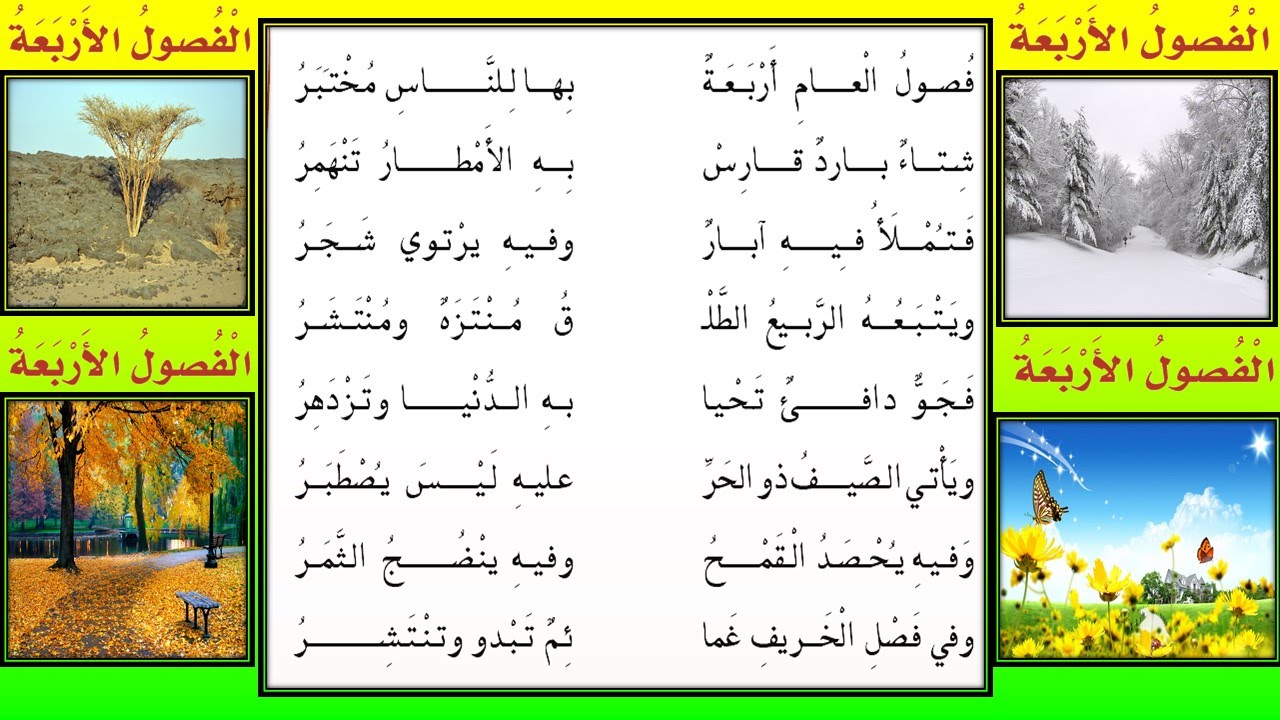 الْفُصولُ الأَرْبَعَةُ
الْفُصولُ الأَرْبَعَةُ
فُصولُ الْعـــامِ أَرْبَعَةٌ بِها لِلنَّـــــاسِ مُخْتَبَرُ
شِتاءٌ بـــاردٌ قـــارِسْ بِهِ الأَمْطـــــارُ تَنْهَمِرُ
فَتمْـلَأُ فِيـــهِ آبـارٌ وفـيهِ يرْتوي شَـجَرُ
ويَتْبَعُـــهُ الرَّبيعُ الطَّلْـ ـقُ مُنْتَزَهٌ ومُنْتَشَـرُ
فَجَوٌّ دافـــــئٌ تَحْيا بهِ الدُّنْيـــــا وتَزْدَهِرُ
ويَأْتي الصَّيـــفُ ذو الحَرِّ عليهِ لَيْـــسَ يُصْطَبَـرُ
وَفيهِ يُحْصَدُ الْقَمْـــحُ وفيهِ ينْضُـــجُ الثَّمَرُ
وفي فَصْلِ الْخَريفِ غَما ئِمٌ تَبْدو وتنْتَشِـــــرُ
الْفُصولُ الأَرْبَعَةُ
الْفُصولُ الأَرْبَعَةُ